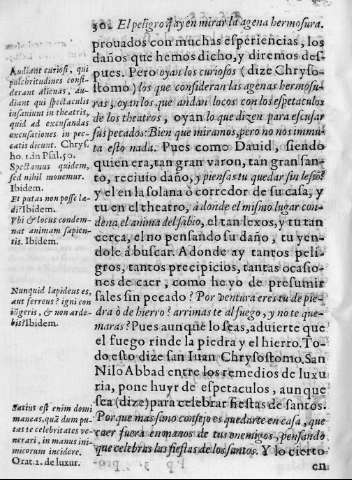 30. El peligro q̃ ay en mirar la agena hermosura.
prouados con muchas esperiencias, los
daños que hemos dicho, y diremos des-
pues. Pero oyan los curiosos (dize Chryso-
stomo) los que consideran las agenas hermosu-
ras, oyan los que andan locos con los espetaculos
de los theatros, oyan lo que dizen para escusar
sus pecados: Bien que miramos, pero no nos immu-
ta esto nada. Pues como Dauid, siendo
quien era, tan gran varon, tan gran san-
to, reciuio daño, y piensas tu quedar sin lesiõ?
y el en la solana ò corredor de su casa, y
tu en el theatro, a donde el mismo lugar con-
dena el anima del sabio, el tan lexos, y tu tan
cerca, el no pensando su daño, tu yen-
dole á buscar. A donde ay tantos peli-
gros, tantos precipicios, tantas ocasio-
nes de caer, como he yo de presumir
sales sin pecado? Por ventura eres tu de pie-
dra ò de hierro? arrimaste al fuego, y no te que-
maras? Pues aunque lo seas, aduierte que
el fuego rinde la piedra y el hierro. To-
do esto dize san Iuan Chrysostomo. San
Nilo Abbad entre los remedios de luxu-
ria, pone huyr de espetaculos, aunque
sea (dize) para celebrar fiestas de santos.
Porque mas sano consejo es quedarte en casa, que
caer fuera en manos de tus enemigos, pensando
que celebras las fiestas de los santos. Y lo cierto
en
Audiant curiosi, qui
pulchritudines consi-
derant alienas, au-
diant qui spectaculis
insaniunt in theatris,
quid ad excusandas
excusationes in pec-
catis dicunt. Chrys.
ho. 1. in Psal. 50.
Spectamus quidem,
sed nihil mouemur.
Ibidem.
Et putas non posse la-
di? Ibidem.
Vbi & locus condem-
nat animam sapien-
tis. Ibidem.
Nunquid lapideus es,
aut ferreus? igni con
iũgeris, & non arde-
bis? Ibidem.
Satius est enim domi
maneas, quã dum pu-
tas te celebritates ve-
nerari, in manus ini-
micorum incidere.
Orat. 2. de luxur.